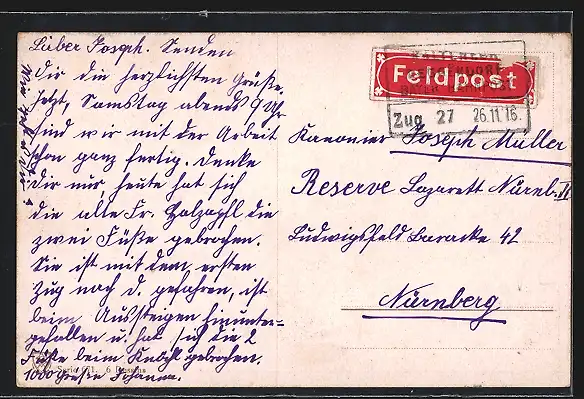 Lieber Joseph. Senden
Dir die herzlichsten Grüße.
Jetzt, Samstag abends 9 Uhr
sind wir mit der Arbeit
schon ganz fertig. Denke
Dir nur, heute hat sich
die alte Fr. Holzapfl die
zwei Füße gebrochen.
Sie ist mit dem ersten
Zug nach D. gefahren, ist
beim Aussteigen hinunter-
gefallen u. hat sich die 2
Füße beim Knöchl gebrochen.
1000 Grüße Johanna.
Wie geht es Dir?
Serie 671. 6 Dessins
Feldpost
Zug 27 26.11.16.
Kanonier Joseph Müller
Reserve Lazarett Nürnb. II
Ludwigsfeld Baracke 42
Nürnberg